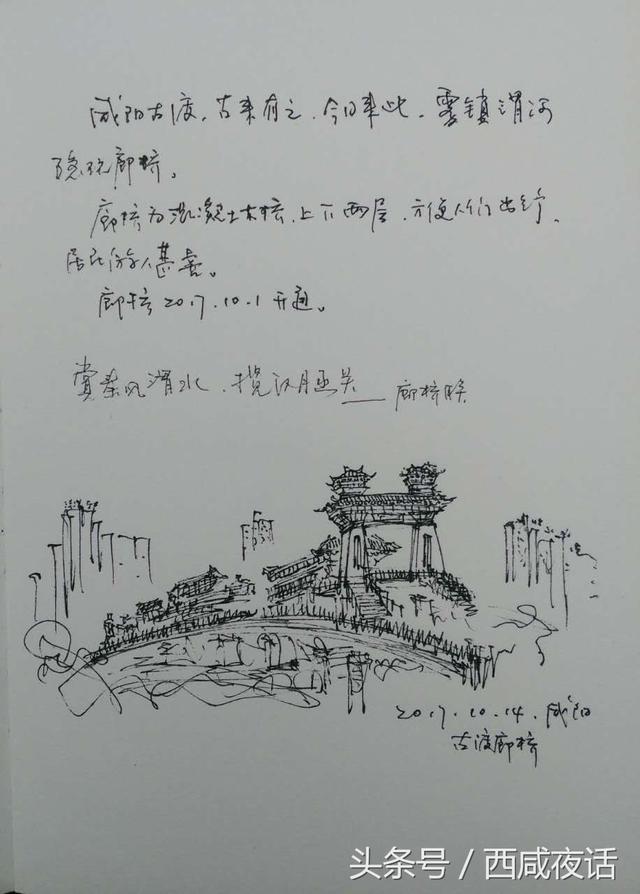 咸阳古渡,古来有之,今日来此,雾锁渭河
隐现廊桥。
廊桥为混凝土木桥,上下两层,方便人们出行,
居民游人甚喜。
廊桥2017.10.1开通。
赏秦风渭水,揽汉月 关——廊桥联
2017.10.14.咸阳
古渡廊桥
头条号/西咸夜话